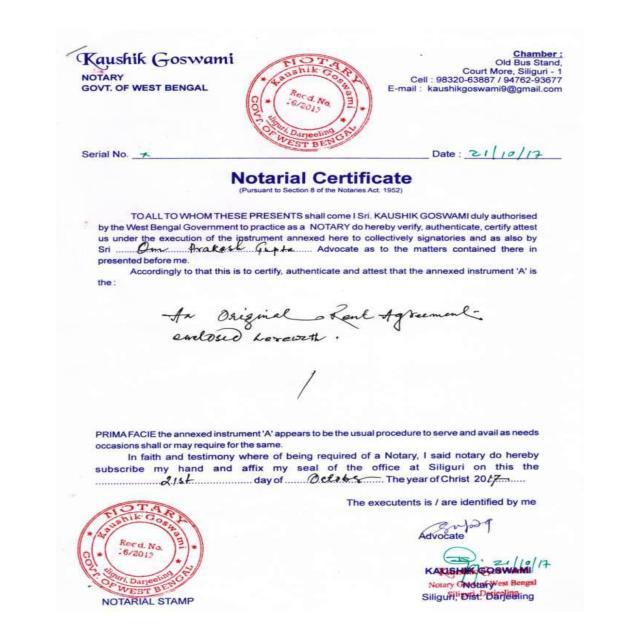 Kaushik Goswami
NOTARY
GOVT. OF WEST BENGAL
NOTARY
Kaushik Goswami
Regd. No.
Siliguri, Darjeeling
GOVT. OF WEST BENGAL
Chamber :
Old Bus Stand,
Court More, Siliguri - 1
Cell : 98320-63887 / 94762-93677
E-mail : kaushikgoswami9@gmail.com
Serial No.
Date : 21/10/17
Notarial Certificate
(Pursuant to Section 8 of the Notaries Act. 1952)
TO ALL TO WHOM THESE PRESENTS shall come I Sri. KAUSHIK GOSWAMI duly authorised
by the West Bengal Government to practice as a NOTARY do hereby verify, authenticate, certify attest
us under the execution of the instrument annexed here to collectively signatories and as also by
Sri Om Prakash Gupta Advocate as to the matters contained there in
presented before me.
Accordingly to that this is to certify, authenticate and attest that the annexed instrument 'A' is
the :
An Original Rent Agreement
enclosed herewith.
PRIMA FACIE the annexed instrument 'A' appears to be the usual procedure to serve and avail as needs
occasions shall or may require for the same.
In faith and testimony where of being required of a Notary, I said notary do hereby
subscribe my hand and affix my seal of the office at Siliguri on this the
21st day of October The year of Christ 2017
The executents is / are identified by me
Advocate
21/10/17
KAUSHIK GOSWAMI
Notary
Siliguri, Dist. Darjeeling
NOTARY
Kaushik Goswami
Regd. No.
Siliguri, Darjeeling
GOVT. OF WEST BENGAL
NOTARIAL STAMP